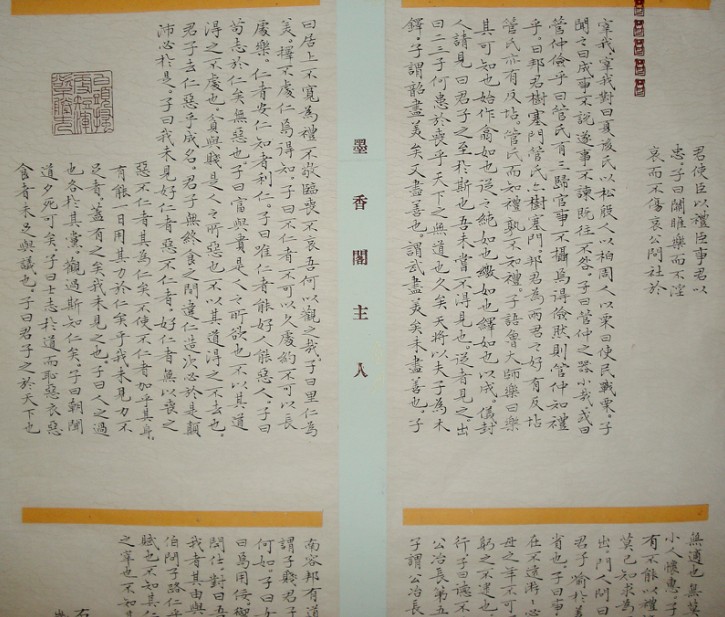 君使臣以禮臣事君以
忠。子曰關雎樂而不淫
哀而不傷哀公問社於
宰我宰我對曰夏后氏以松殷人以柏周人以栗曰使民戰栗。子
聞之曰成事不說遂事不諫既往不咎。子曰管仲之器小哉或曰
管仲儉乎曰管氏有三歸官事不攝焉得儉然則管仲知禮
乎。曰邦君樹塞門管氏亦樹塞門邦君為兩君之好有反坫
管氏亦有反坫。管氏而知禮孰不知禮。子語魯大師樂曰樂
其可知也始作翕如也從之純如也皦如也繹如也以成。儀封
人請見曰君子之至於斯也吾未嘗不得見也。從者見之。出
曰二三子何患於喪乎。天下之無道也久矣天將以夫子為木
鐸。子謂韶盡美矣又盡善也。謂武盡美矣未盡善也。子
墨香閣主人
曰居上不寬為禮不敬臨喪不哀吾何以觀之哉。子曰里仁為
美。擇不處仁焉得知。子曰不仁者不可以久處約不可以長
處樂。仁者安仁知者利仁。子曰唯仁者能好人能惡人。子曰
苟志於仁矣無惡也。子曰富與貴是人之所欲也不以其道
得之不處也。貧與賤是人之所惡也不以其道得之不去也。
君子去仁惡乎成名。君子無終食之間違仁造次必於是顛
沛必於是。子曰我未見好仁者惡不仁者。好仁者無以尚之
惡不仁者其為仁矣不使不仁者加乎其身
有能一日用其力於仁矣乎我未見力不
足者。蓋有之矣我未見之也。子曰人之過
也各於其黨。觀過斯知仁矣。子曰朝聞
道夕死可矣。子曰士志於道而恥惡衣惡
食者未足與議也。子曰君子之於天下也
無適也無莫
小人懷惠。子
有不能以禮
莫己知求為
出。門人問曰
君子喻於義
省也。子曰事
在不遠游
母之年不可
躬之不逮也
行子曰德不
公冶長第五
子謂公冶長
南容邦有道
謂子賤君子
何如。子曰女
曰焉用佞。禦
開仕。對曰吾
我者其由與
伯問子路仁
賦也不知其仁
之宰也不知